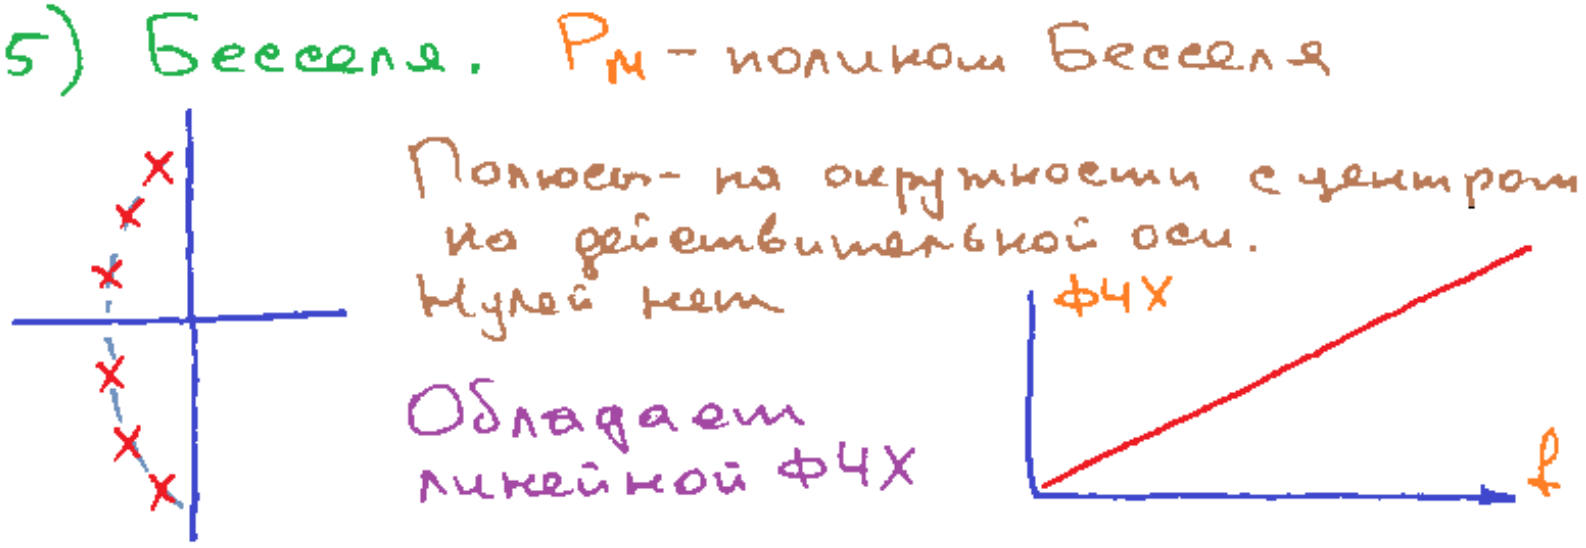 5) Бесселя. Pм - полином Бесселя
Полюсы - на окружности с центром
на действительной оси.
Нулей нет
ФЧХ
Обладает
линейной ФЧХ
f